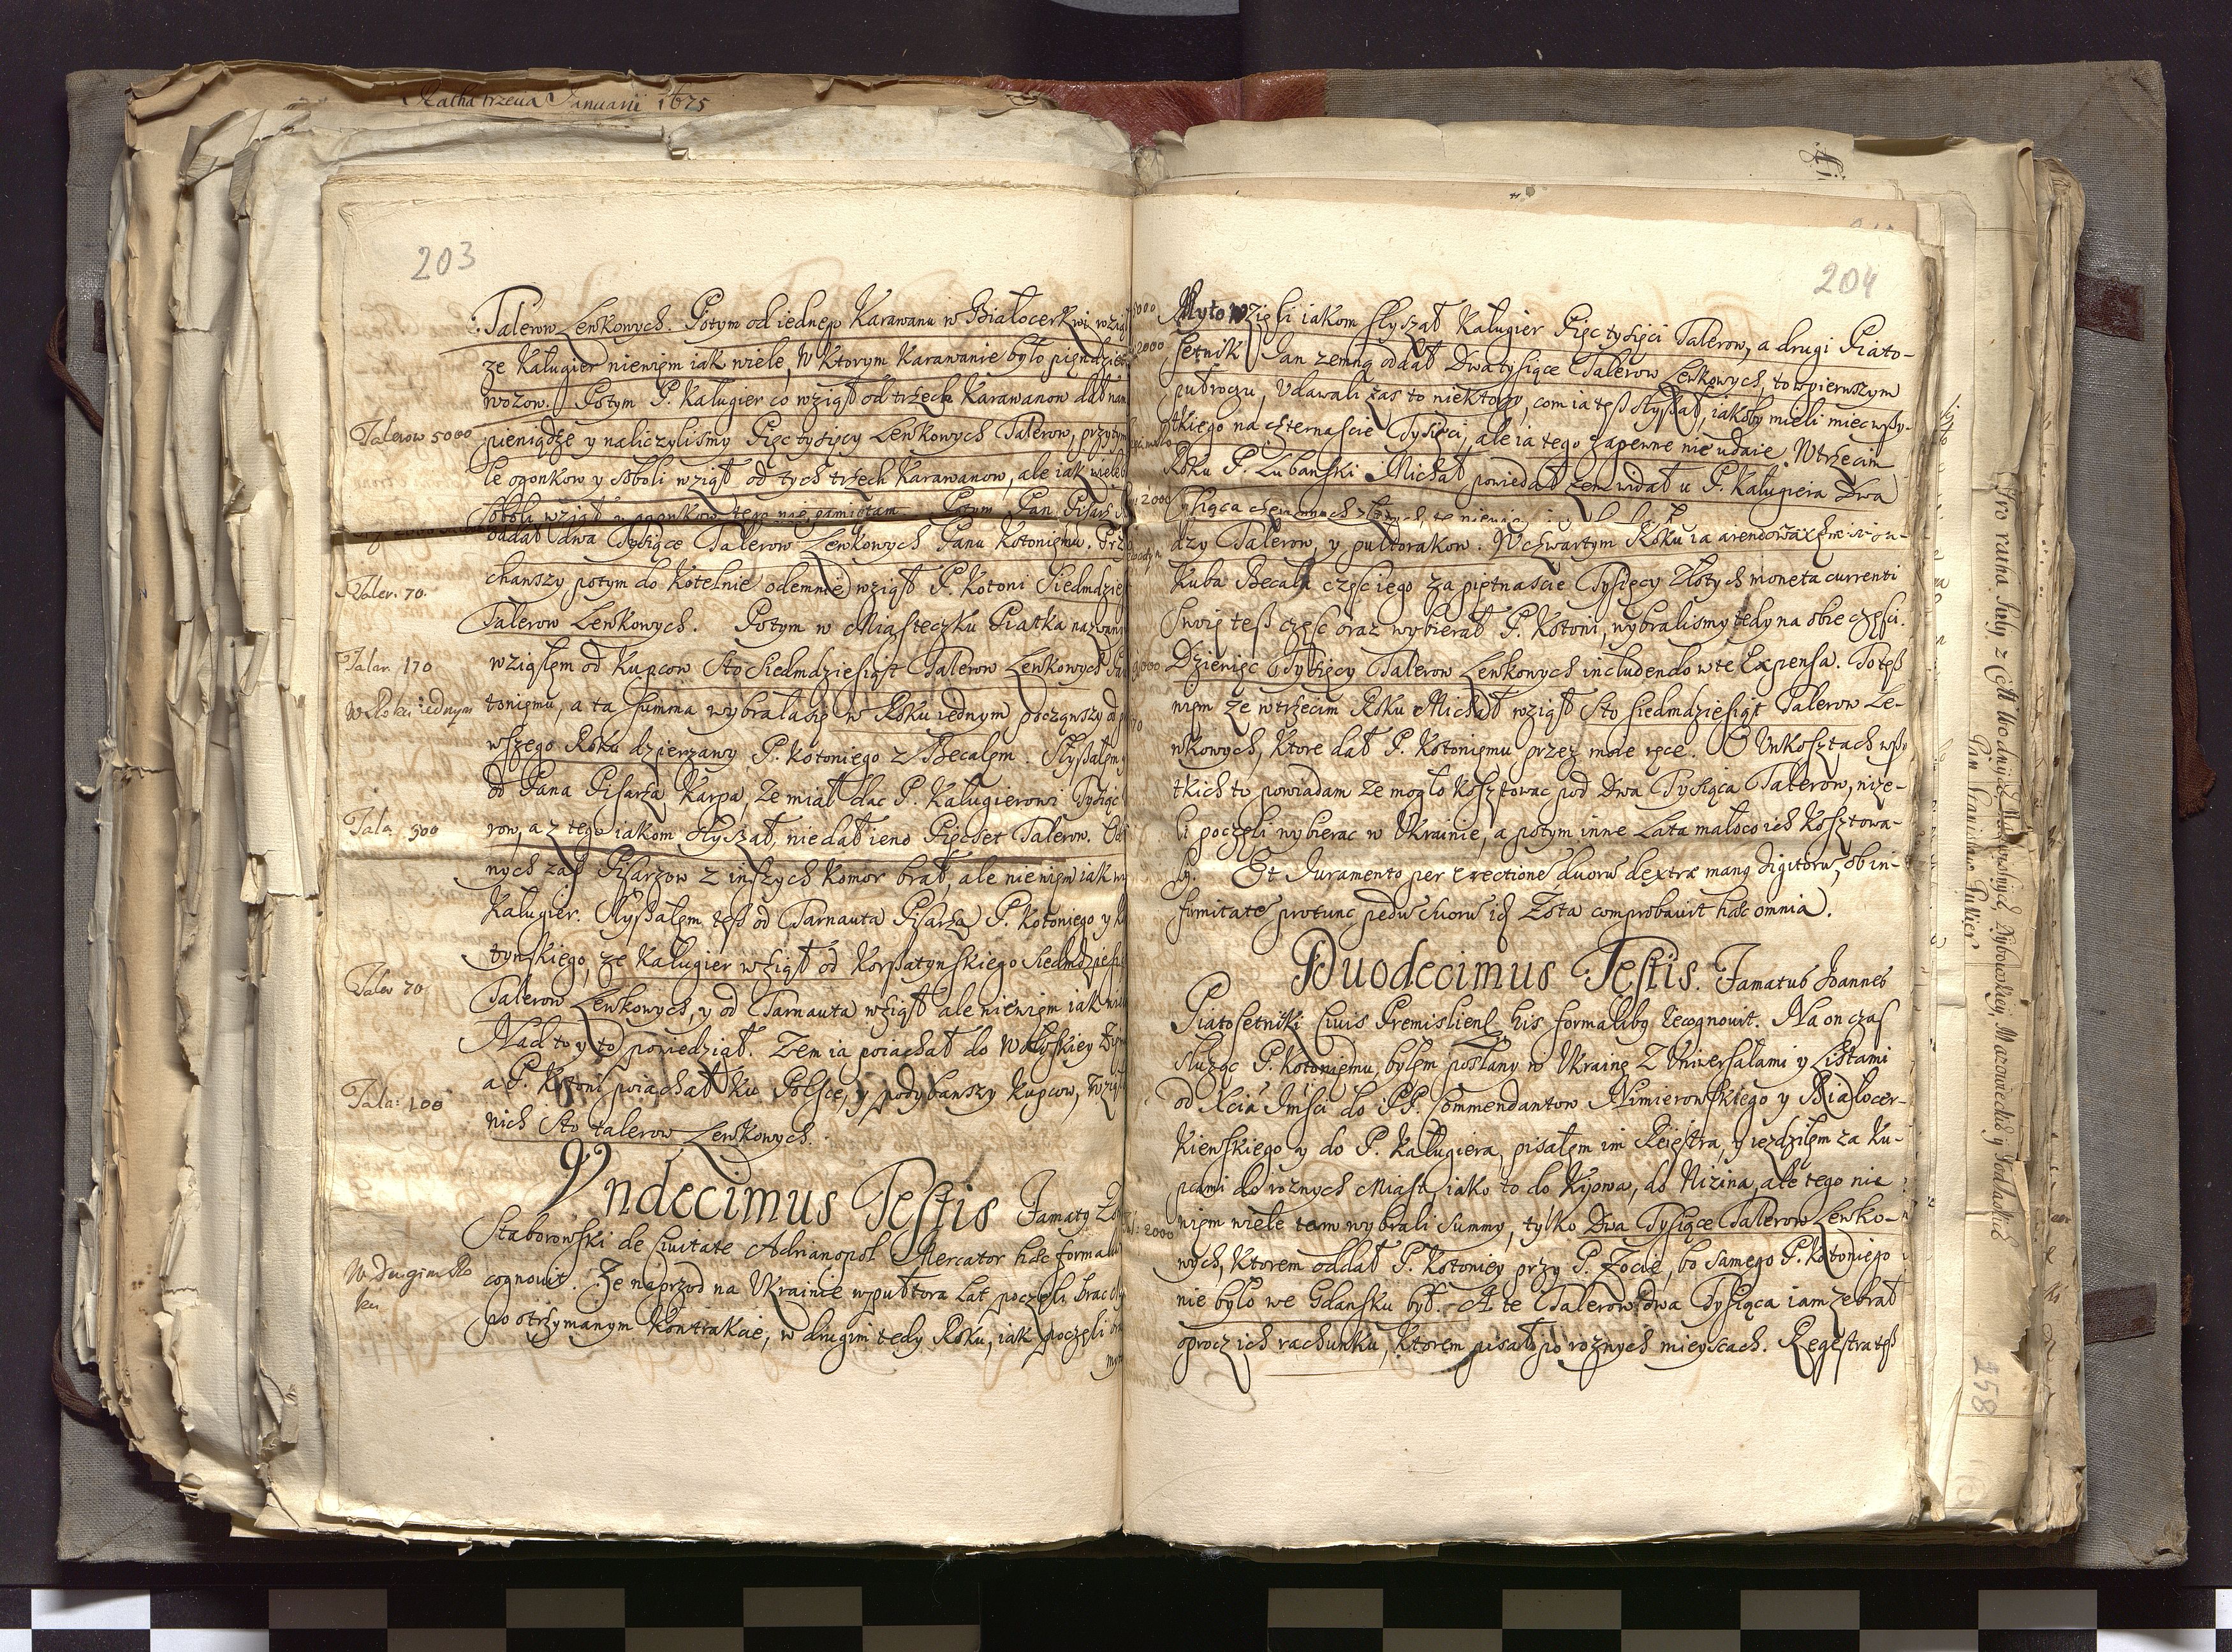 Ratha trzecia Januarii 1675
203
Talerow Lewkowych. Potym od iednego Karawanu w Białocerkwi
ze Kaługier niewiem iak wiele, W ktorym Karawanie było
wozow. Potym P. Kaługier co wziął od trzech Karawanow dał nam
Talerow 5000
pieniądze y naliczylismy Pięc tysięcy Lewkowych Talerow, przytym
le ogonkow y soboli wziął od tych trzech Karawanow, ale iak wiele
soboli wziął y ogonkow tego nie pamiętam Potym Pan Pisarz
oddał dwa Tysiące Talerow Lewkowych Panu Kotoniemu.
Taler. 70
chawszy potym do Kotelnie odemnie wziął P. Kotoni
Talerow Lewkowych. Potym w Miasteczku Piatka
Talar. 170
wziąłem od Kupcow Sto Siedmdziesiąt Talerow Lewkowych
W Roku iednym
toniemu, a ta summa wybrała się w Roku iednym począwszy od
wszego Roku dzierzawy P. Kotoniego z Becalem. Słyszałem
od Pana Pisarza Karpa, ze miał dac P. Kaługierowi
Tala. 500
row, a z tego iakom słyszał, nie dał ieno Pięcset Talerow.
nych zas Pisarzow z inszych Komor brał, ale nie wiem iak
Kaługier. Słyszałem tesz od Tarnauta Pisarza P. Kotoniego y
tynskiego, ze Kaługier wziął od Korsatynskiego
Taler 70
Talerow Lewkowych, y od Tarnauta wziął ale niewiem iak
Nad to y to powiedział. Zem ia poiachał do Wołoskiey
Tala: 100
a P. Kotoni poiachał ku Polsce, y podybawszy Kupcow,
nich Sto talerow Lewkowych.
Vndecimus Testis
Staborowski de Civitate Adrianopol Mercator
W drugim Ro
ku
cognovit. Ze naprzod na Ukrainie w pułtora Lat poczęli brac
po otrzymanym Kontrakcie, w drugim tedy Roku, iak poczęli
204
Myto wzięli iakom słyszał Kaługier Pięc tysięci Talerow, a drugi Piato-
2000
setnik Jan zemną oddał Dwa tysiące Talerow Lewkowych, to w pierwszym
pułroczu, Udawali zas to niektorzy, com ia tesz słyszał, iakoby mieli miec wszy-
stkiego na czternascie Tysięci, ale ia tego zapewne nie udaie. W trzecim
Roku P. Lubanski Michał powiedał zem widał u P. Kaługiera Dwa
2000
Tysiąca
dzy Talerow, y pułtorakow. W czwartym Roku ia
Kuba Becala częsc iego za piętnascie Tysięcy Złotych moneta currenti
Swoię tesz częsc oraz wybierał P. Kotoni, wybralismy tedy na obie częsci.
9000
Dziewięc Tysięcy Talerow Lewkowych includendo w te Expensa. To tesz
wiem ze w trzecim Roku Michał wziął Sto siedmdziesiąt Talerow Le-
wkowych, ktore dał P. Kotoniemu przez moie ręce. O Unkosztach wszy
tkich to powiadam ze mogło kosztowac pod Dwa Tysiąca Talerow, niże-
li poczęli wybierac w Ukrainie, a potym inne Lata mało co ich kosztowa-
ły. Et Juramento per erectione duoru dextræ manq digitoru, ob in-
firmitate protunc pedu suoru Zota comprobavit hæc omnia.
Duodecimus Testis. Famatus Joannes
Piatosetniki Civis Premislien his formalibq recognovit. Na on czas
służąc P. Kotoniemu, byłem posłany w Ukrainę z Uniwersałami y Listami
od Xcia Jmsci do PP. Commendantow Nimierowskiego y Białocer-
kiewskiego y do P. Kaługiera, pisałem im Reiestra, y iezdziłem za Ku-
pcami do roznych Miast, iako to do Kijowa, do Nizina, ale tego nie
2000
wiem wiele tam wybrali summy, tylko Dwa Tysiące Talerow Lewko-
wych, ktorem oddał P. Kotoniey przy P. Zocie, bo samego P. Kotoniego
nie było we Gdansku był. A te Talerow dwa Tysiąca iam zebrał
oprocz ich rachunku, ktorem pisał po roznych mieyscach. Regestra tesz
258